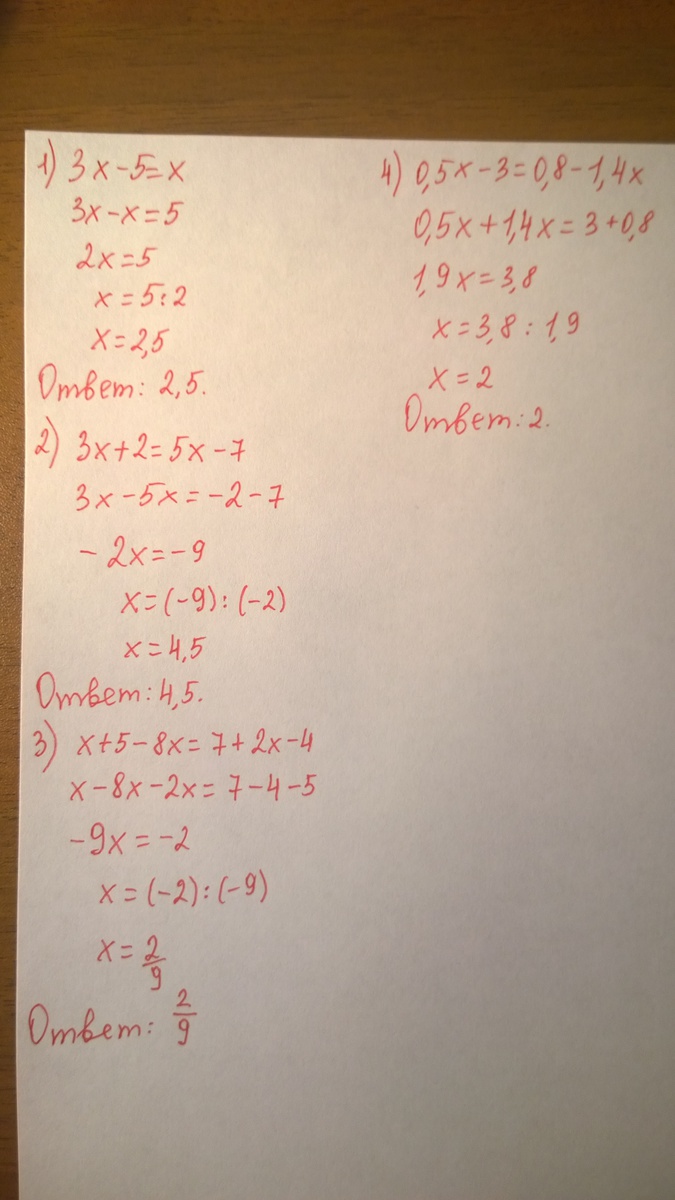 1) 3x-5=x
3x-x=5
2x=5
x=5:2
x=2,5
Ответ: 2,5.
2) 3x+2=5x-7
3x-5x=-2-7
-2x=-9
x=(-9):(-2)
x=4,5
Ответ: 4,5.
3) x+5-8x=7+2x-4
x-8x-2x=7-4-5
-9x=-2
x=(-2):(-9)
x=2/9
Ответ: 2/9
4) 0,5x-3=0,8-1,4x
0,5x+1,4x=3+0,8
1,9x=3,8
x=3,8:1,9
x=2
Ответ: 2.